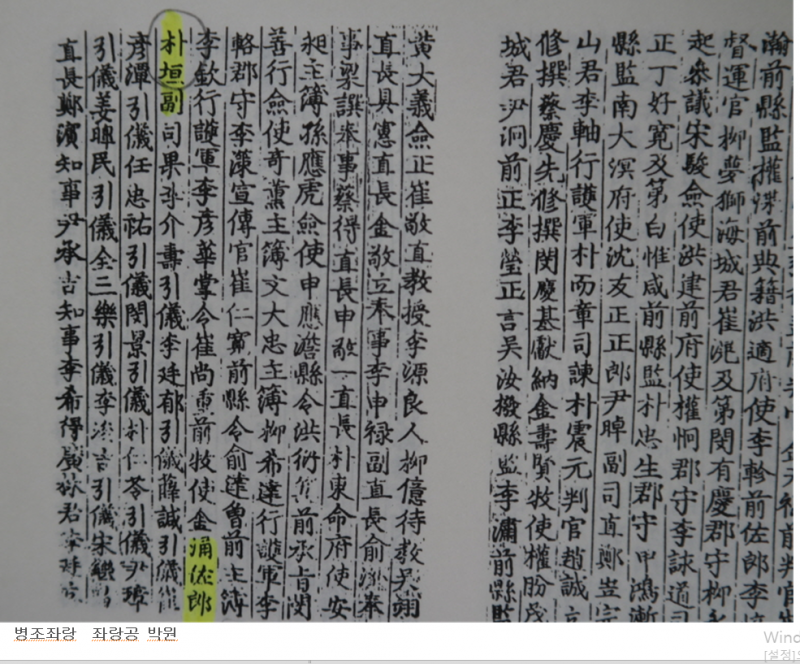 瀚前縣監權前典籍洪適府使李軫前佐郎李
督運官柳夢獅海城君崔及第閔有慶郡守柳
起參議宋駿僉使洪建前府使權恦郡守李諫道司
正丁好寬及第白惟咸前縣監朴忠生郡守申鴻漸
縣監南大溟府使沈友正正郎尹晫副司直鄭豈宗
山君李軸行護軍朴而章司諫朴震元判官趙誠
修撰蔡慶先修撰閔慶基獻納金壽賢牧使權盼茂
城君尹泂前正李瑩正言吳汝撥縣監李瀟前縣監
黃大義僉正崔敬直教授李源良人柳億待教吳翊
直長具憲直長金敬立奉事李申祿副直長俞奉
事譔奉事蔡得直長申敬一直長朴東命府使安
昶主簿孫應虎僉使申應澹縣令洪衍前承旨閔
善行僉使奇薰主簿文大忠主簿柳希達行護軍李
輅郡守李藻宣傳官崔仁甯前縣令俞達曾前主簿
李欽行護軍李彦華掌令崔尚重前牧使金涌佐郎
朴垣副司果李介壽引儀李廷郁引儀薛誠引儀崔
彦潭引儀任忠祐引儀閔景引儀朴仁苓引儀尹璋
引儀姜暉民引儀全三樂引儀李浚吉引儀宋
直長鄭濱知事尹承吉知事李希得廣林君李廷
병조좌랑 좌랑공 박원
Wind
[설정]